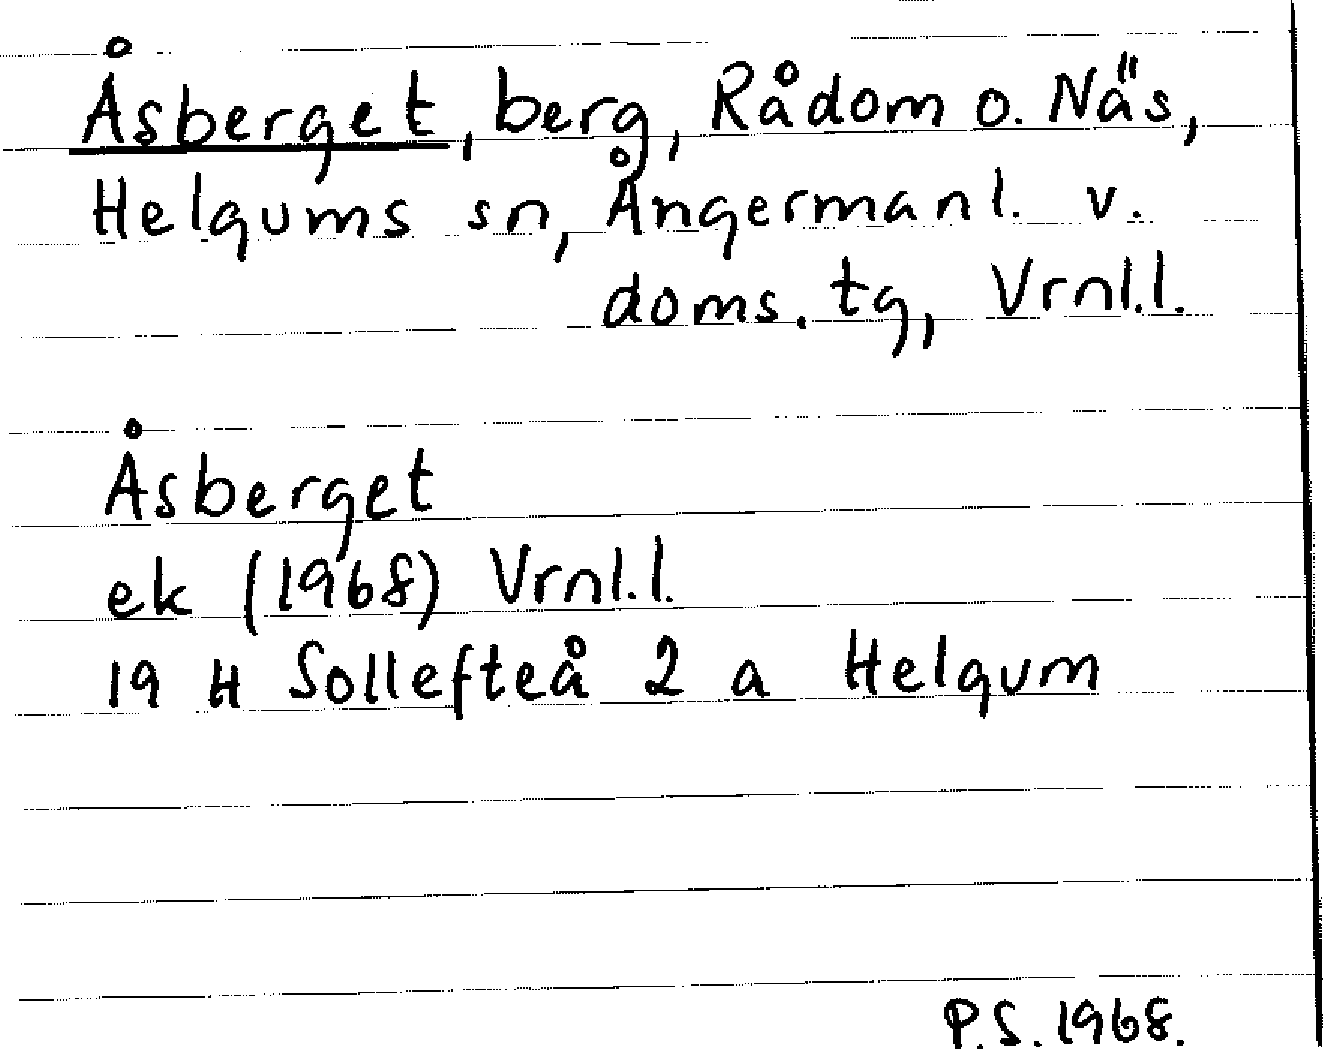 Åsberget, berg, Rådom o. Näs,
Helgums sn, Ångermanl. v.
doms. tg, Vrnl.l.
Åsberget
ek (1968) Vrnl.l.
19 H Sollefteå 2 a Helgum
P.S. 1968.